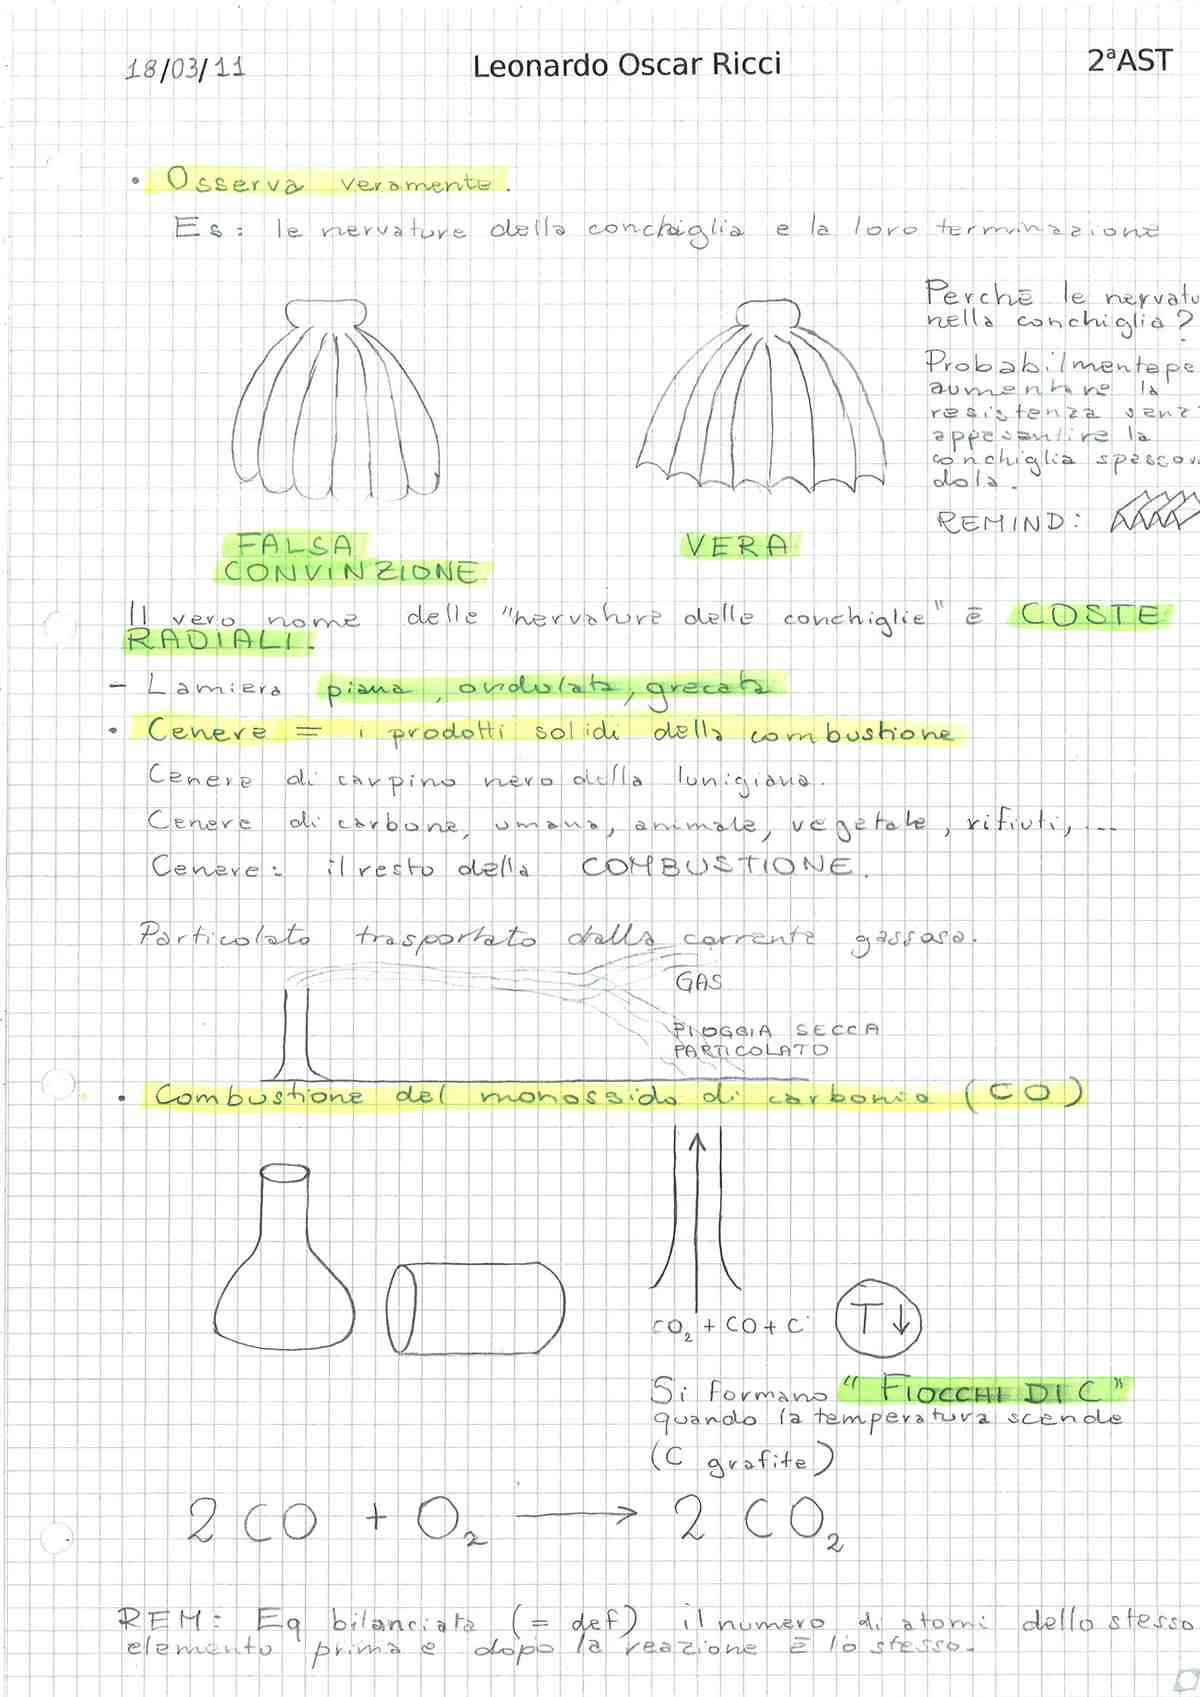 18/03/11
Leonardo Oscar Ricci
2ªAST
• Osserva veramente.
Es: le nervature della conchiglia e la loro terminazione
Perchē le nervatu
nella conchiglia?
Probabilmente pe
aumentare la
resistenza senz
appesantire la
conchiglia spesson
dola.
REMIND:
FALSA
CONVINZIONE
VERA
Il vero nome delle "nervature delle conchiglie" ē COSTE
RADIALI.
– Lamiera piana, ondulata, grecata
• Cenere = i prodotti solidi della combustione
Cenere di carpino nero della lunigiana.
Cenere di carbone, umana, animale, vegetale, rifiuti, ...
Cenere: il resto della COMBUSTIONE.
Particolato trasportato dalla corrente gassosa.
GAS
PIOGGIA SECCA
PARTICOLATO
• Combustione del monossido di carbonio (CO)
CO₂ + CO + C
T↓
Si formano "FIOCCHI DI C"
quando la temperatura scende
(C grafite)
2 CO + O₂ → 2 CO₂
REM: Eq bilanciata (= def) il numero di atomi dello stesso
elemento prima e dopo la reazione ē lo stesso.